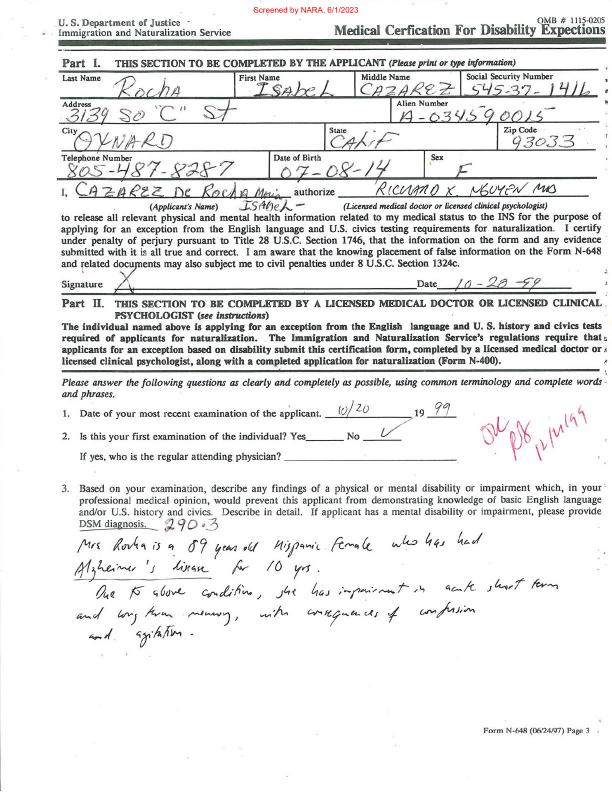 Screened by NARA, 6/1/2023
U. S. Department of Justice
Immigration and Naturalization Service
OMB # 1115-0205
Medical Cerfication For Disability Expections
Part I. THIS SECTION TO BE COMPLETED BY THE APPLICANT (Please print or type information)
Last Name First Name Middle Name Social Security Number
Rocha ISabeL CAZAREZ 545-37-1416
Address Alien Number
3139 SO "C" St A-034590015
City State Zip Code
OXNARD CALiF 93033
Telephone Number Date of Birth Sex
805-487-8287 07-08-14 F
I, CAZAREZ De Rocha Maria authorize RICHARD K. NGUYEN MD
(Applicant's Name) ISAbeL- (Licensed medical doctor or licensed clinical psychologist)
to release all relevant physical and mental health information related to my medical status to the INS for the purpose of
applying for an exception from the English language and U.S. civics testing requirements for naturalization. I certify
under penalty of perjury pursuant to Title 28 U.S.C. Section 1746, that the information on the form and any evidence
submitted with it is all true and correct. I am aware that the knowing placement of false information on the Form N-648
and related documents may also subject me to civil penalties under 8 U.S.C. Section 1324c.
Signature X Date 10-20-99
Part II. THIS SECTION TO BE COMPLETED BY A LICENSED MEDICAL DOCTOR OR LICENSED CLINICAL
PSYCHOLOGIST (see instructions)
The individual named above is applying for an exception from the English language and U. S. history and civics tests
required of applicants for naturalization. The Immigration and Naturalization Service's regulations require that
applicants for an exception based on disability submit this certification form, completed by a licensed medical doctor or
licensed clinical psychologist, along with a completed application for naturalization (Form N-400).
Please answer the following questions as clearly and completely as possible, using common terminology and complete words
and phrases.
1. Date of your most recent examination of the applicant. 10/20 19 99
2. Is this your first examination of the individual? Yes No ✓
If yes, who is the regular attending physician?
3. Based on your examination, describe any findings of a physical or mental disability or impairment which, in your
professional medical opinion, would prevent this applicant from demonstrating knowledge of basic English language
and/or U.S. history and civics. Describe in detail. If applicant has a mental disability or impairment, please provide
DSM diagnosis. 290.3
Mrs Rocha is a 89 years old Hispanic Female who has had
Alzheimer's disease for 10 yrs.
Due to above condition, she has impairment in acute short term
and long term memory, with consequences of confusion
and agitation.
Form N-648 (06/24/97) Page 3